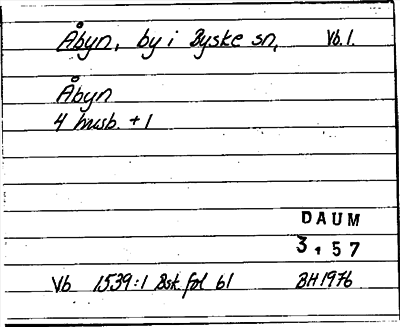 Åbyn, by i Byske sn, Vb.l.
Åbyn
4 husb. + 1
DAUM
3,57
Vb 1539:1 Bsk. fol 61 BH 1976